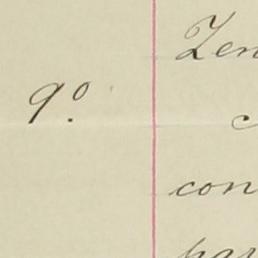 9º.
Zen
c
con
par